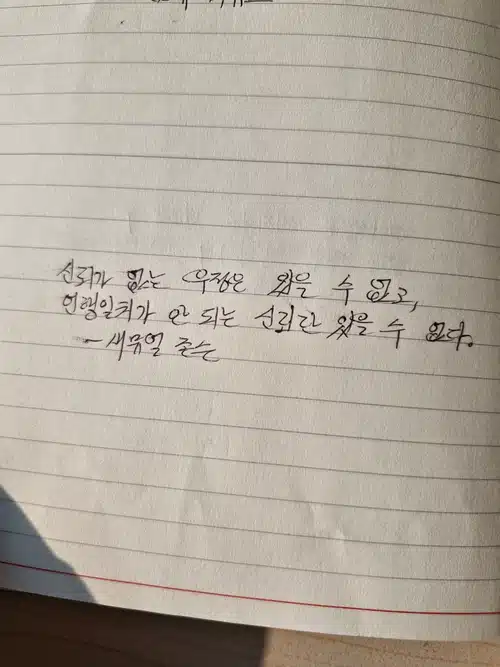 신뢰가 없는 우정은 있을 수 없고,
언행일치가 안 되는 신뢰란 있을 수 없다.
- 새뮤얼 존슨